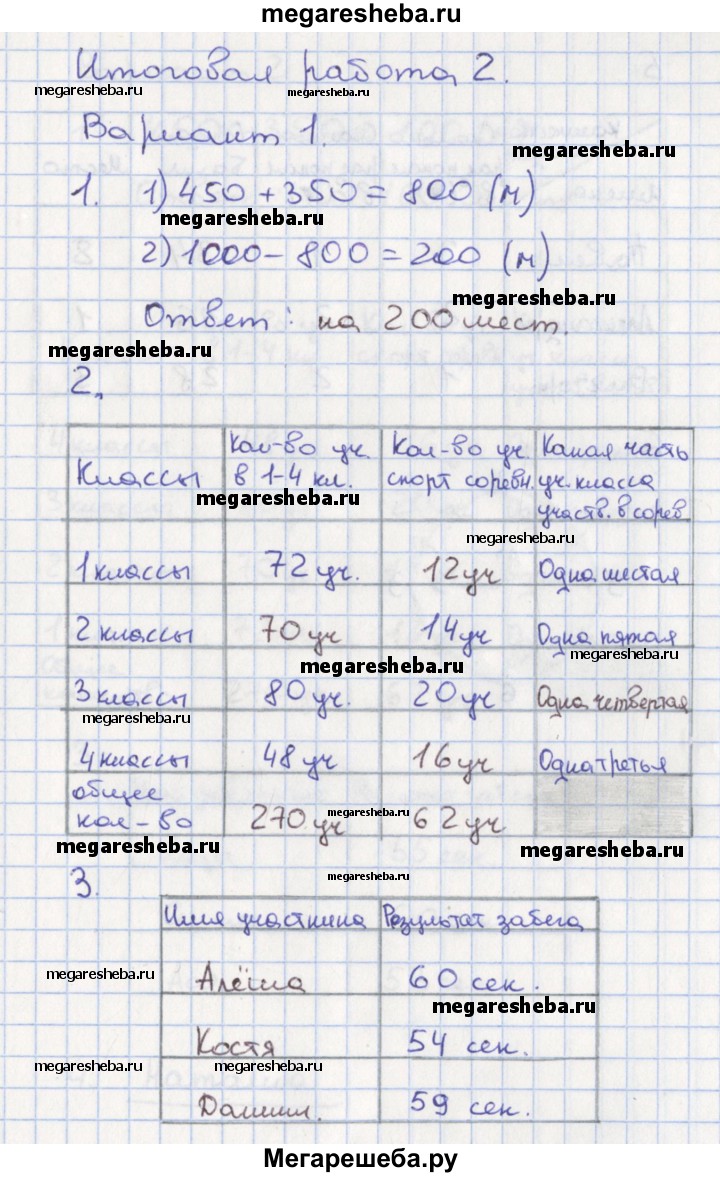 megaresheba.ru
Итоговая работа 2.
megaresheba.ru megaresheba.ru
Вариант 1.
megaresheba.ru
1. 1) 450 + 350 = 800 (м)
megaresheba.ru
2) 1000 - 800 = 200 (м)
megaresheba.ru
Ответ: на 200 мест.
megaresheba.ru
2.
Классы | Кол-во уч. в 1-4 кл. | Кол-во уч. спорт соревн. | Какая часть уч. класса участв. в сорев
megaresheba.ru
megaresheba.ru
1 классы | 72 уч. | 12 уч | Одна шестая
2 классы | 70 уч | 14 уч | Одна пятая
megaresheba.ru
megaresheba.ru
3 классы | 80 уч. | 20 уч | Одна четвертая
megaresheba.ru
4 классы | 48 уч | 16 уч | Одна третья
общее кол-во | 270 уч | 62 уч
megaresheba.ru
megaresheba.ru megaresheba.ru
3.
megaresheba.ru
Имя участника | Результат забега
Алёша | 60 сек.
megaresheba.ru
megaresheba.ru
Костя | 54 сек.
megaresheba.ru megaresheba.ru
Даниил. | 59 сек.
Мегарешеба.ру